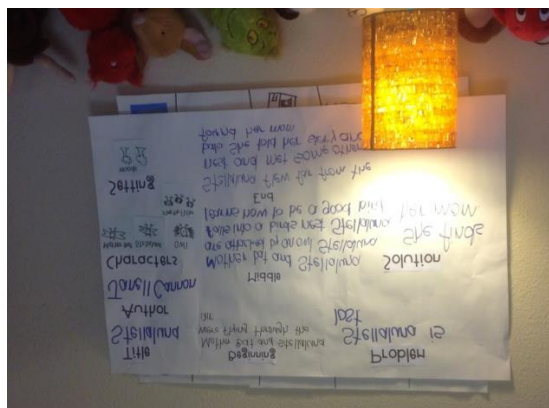 Title
Stellaluna
Author
Janell Cannon
Characters
Stellaluna Owl
Setting
woods
Beginning
Mother Bat and Stellaluna
were flying through the
air
Middle
Mother bat and Stellaluna
are attacked by an owl. Stellaluna
falls into a birds nest. Stellaluna
learns how to be a good bird
End
Stellaluna flew far from the
nest and met some other
bats. She told her story and
found her mom
Problem
Stellaluna is
lost
Solution
She finds
her mom